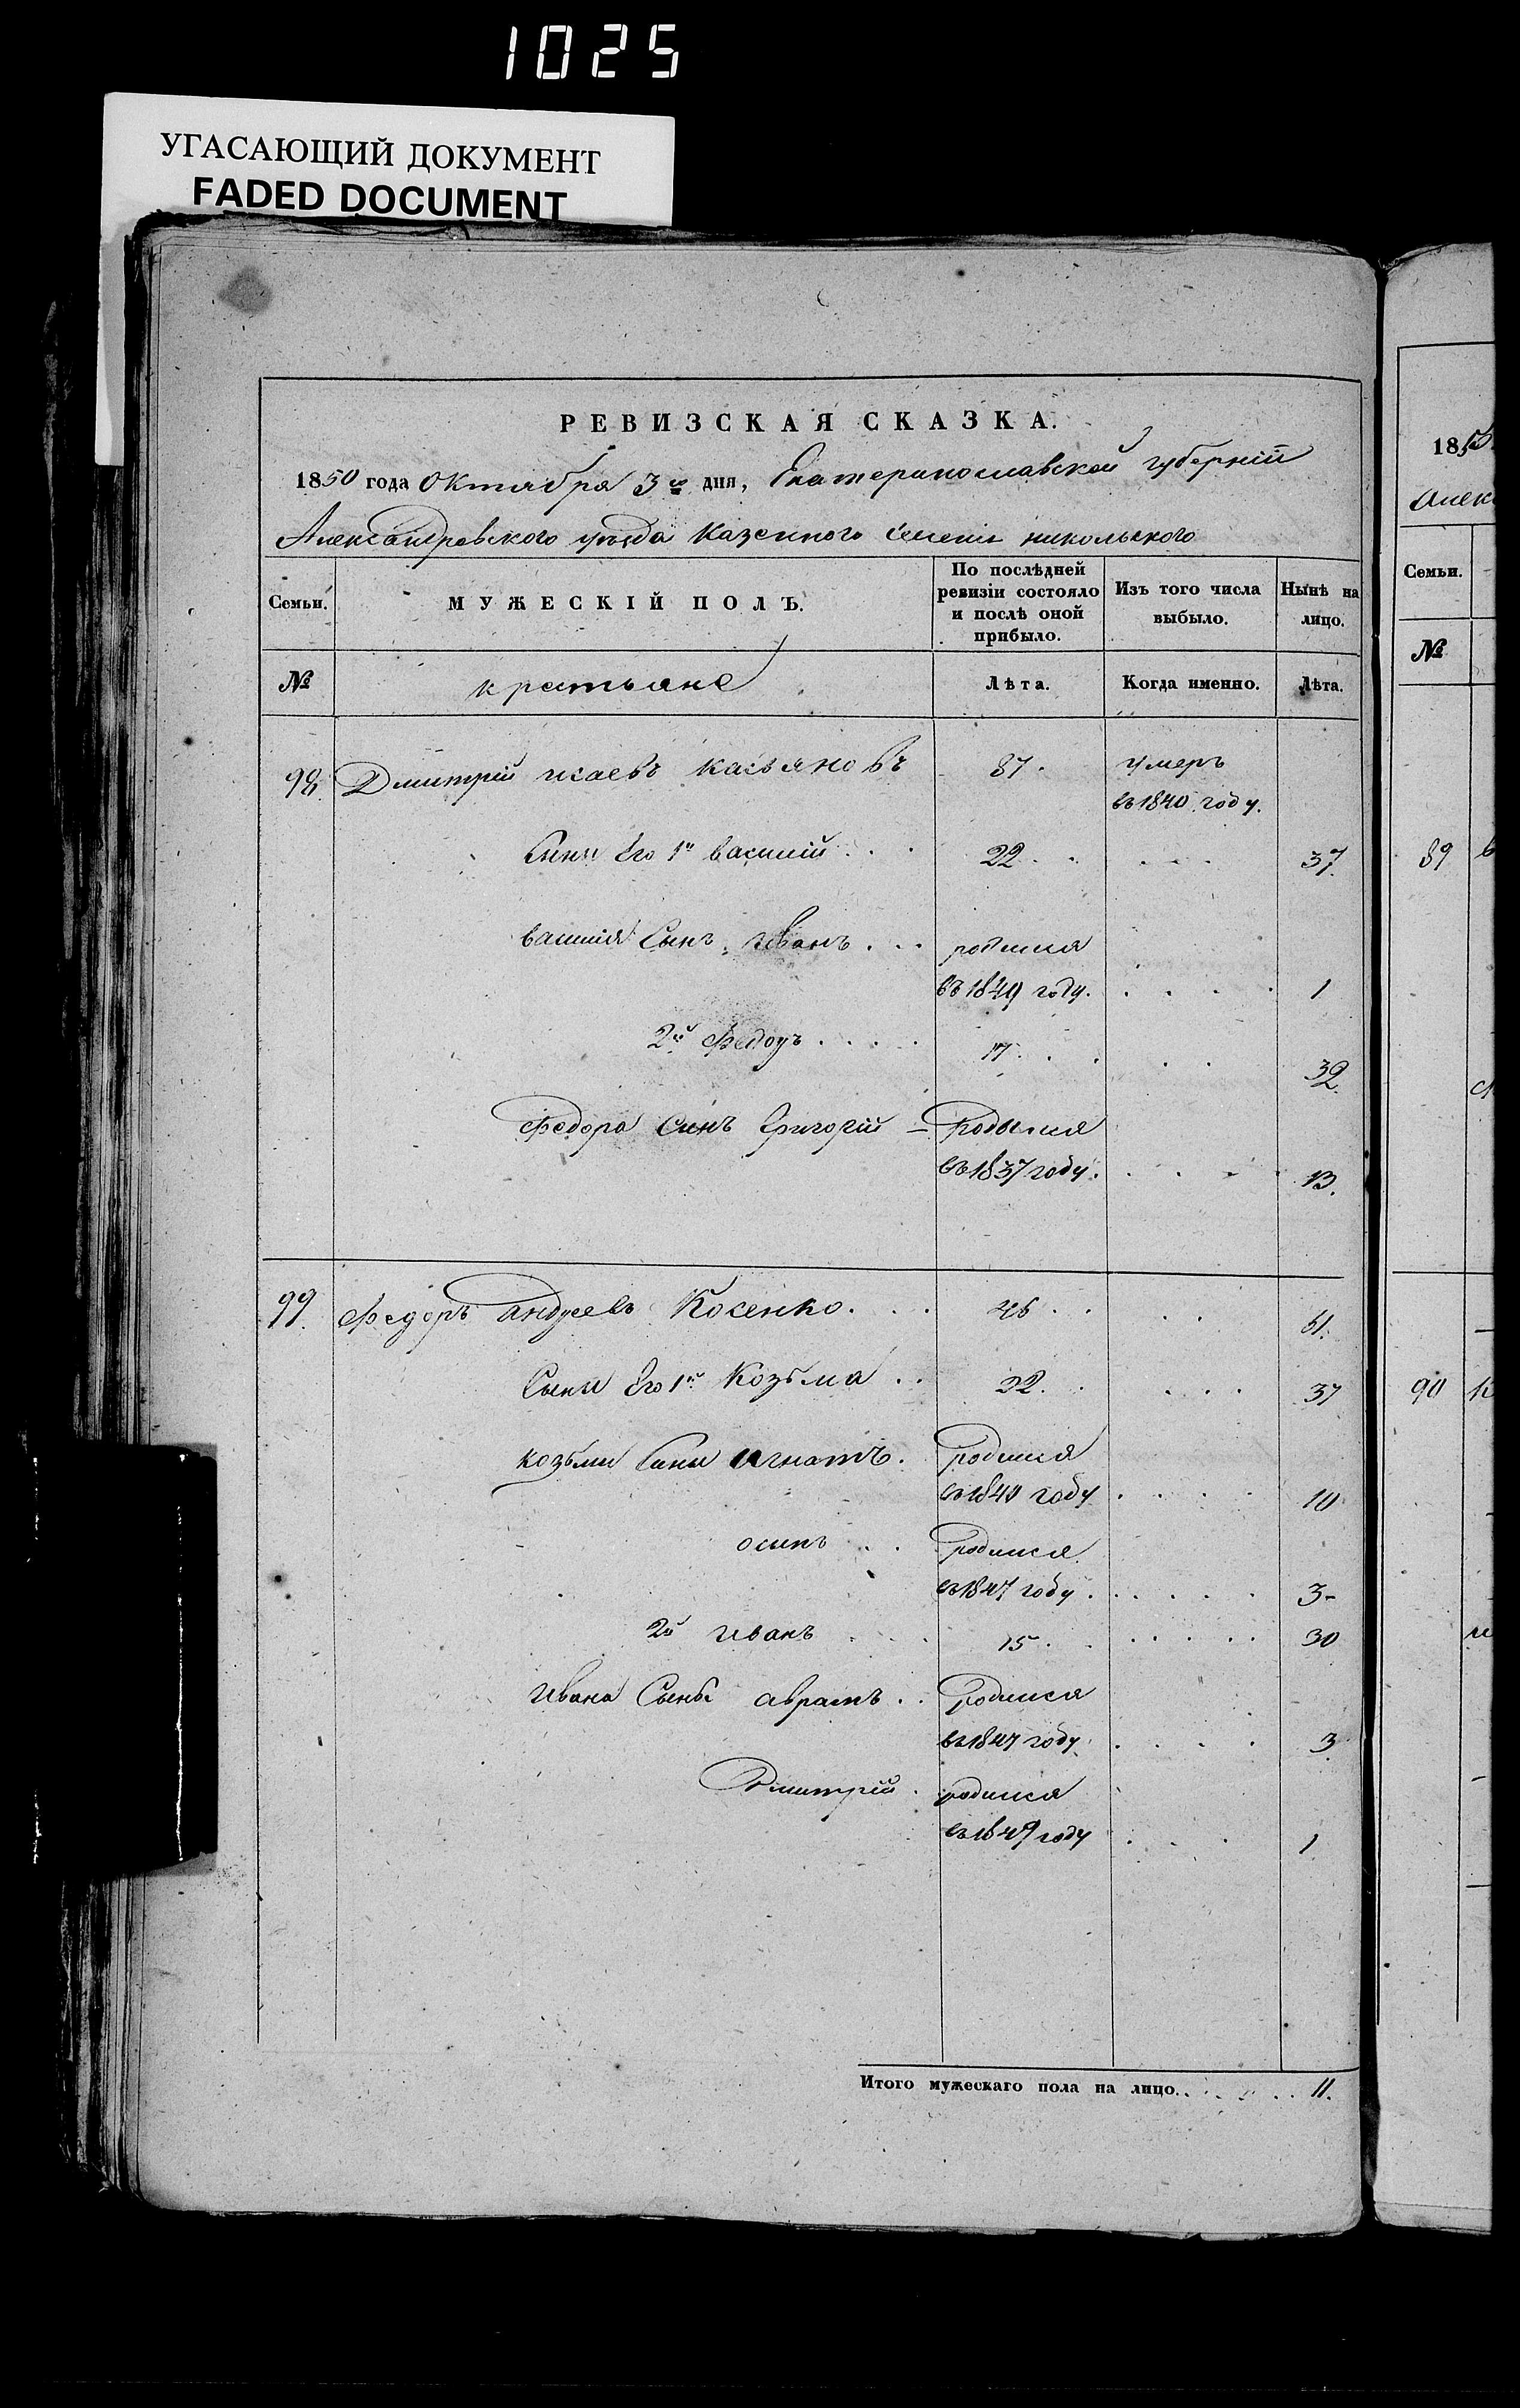 1025
УГАСАЮЩИЙ ДОКУМЕНТ
FADED DOCUMENT
РЕВИЗСКАЯ СКАЗКА.
1850 года Октября 3го дня, Екатеринославской губерніи
Александровского уѣзда Казенного селенія никольского
Семьи.
МУЖЕСКІЙ ПОЛЪ.
По послѣдней ревизіи состояло и послѣ оной прибыло.
Изъ того числа выбыло.
Нынѣ на лицо.
№ крестьяне Лѣта. Когда именно. Лѣта.
98. Дмитрій исаевъ касьяновъ 87. умеръ
въ 1840 году.
Сыны Его 1й василій . . . 22. . . . . 37.
василія Сынъ иванъ . . . родился
въ 1849 году. . . . . 1
2й Федоръ . . . . 17. . . . . 32.
Федора Сынъ Григорій — Родился
въ 1837 году. . . . . 13.
99. Федоръ андреевъ Косенко. . . 46 . . . . 61.
Сыны Его 1й Козьма . . 22. . . . . 37
козьмы Сыны игнатъ. Родился
въ 1840 году . . . . 10
осипъ . . Родился
въ 1847 году . . . . . 3-
2й иванъ . . . 15. . . . . . 30
ивана Сыны аврамъ . . Родился
въ 1847 году . . . . 3
Дмитрій . родился
въ 1849 году . . . 1
Итого мужескаго пола на лицо. . . . . . 11.
1850
Алек
Семьи.
№
89
90